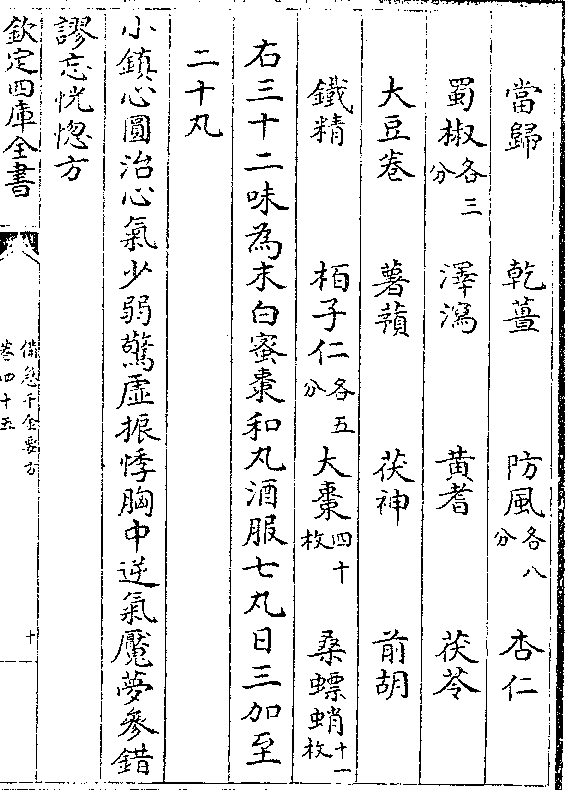 當歸 乾薑 防風各八分 杏仁
蜀椒各三分 澤瀉 黄耆 茯苓
大豆卷 薯蕷 茯神 前胡
鐵精 栢子仁各五分 大棗四十枚 桑螵蛸十一枚
右三十二味為末白蜜棗和丸酒服七丸日三加至
二十丸
小鎮心圓治心氣少弱驚虛振悸胸中逆氣魘夢參錯
謬忘恍惚方
欽定四庫全書
備急千金要方
卷四十五
十